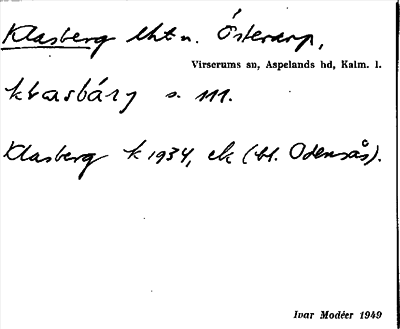 Klasberg lht u. Österarp,
Virserums sn, Aspelands hd, Kalm. l.
klasbárj s. m.
Klasberg k 1934, ek (bl. Odensås).
Ivar Modéer 1949